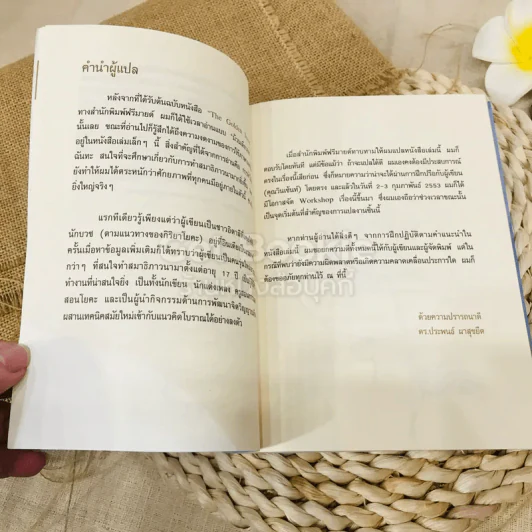 คำนำผู้แปล
หลังจากที่ได้รับต้นฉบับหนังสือ "The Golden
ทางสำนักพิมพ์ฟรีมายด์ ผมก็ได้ใช้เวลาอ่านแบบ
นั้นเลย ขณะที่อ่านไปก็รู้สึกได้ถึงความงดงามของการ
อยู่ในหนังสือเล่มเล็กๆ นี้ สิ่งสำคัญที่ได้จากการอ่านคือ
ฉันทะ สนใจที่จะศึกษาเกี่ยวกับการทำสมาธิภาวนามาก
ยังทำให้ผมได้ตระหนักว่าศักยภาพที่ทุกคนมีอยู่ภายใน
ยิ่งใหญ่จริงๆ
แรกทีเดียวรู้เพียงแต่ว่าผู้เขียนเป็นชาวอิตาลี
นักบวช (ตามแนวทางของกิริยาโยคะ) อยู่ที่อินเดีย
ครั้นเมื่อหาข้อมูลเพิ่มเติมก็ให้ทราบว่าผู้เขียนเป็น
กว่าๆ ที่สนใจทำสมาธิภาวนามาตั้งแต่อายุ 17 ปี
ทำงานที่น่าสนใจยิ่ง เป็นทั้งนักเขียน นักแต่งเพลง
สอนโยคะ และเป็นผู้นำกิจกรรมด้านการพัฒนาจิตวิญญาณ
ผสานเทคนิคสมัยใหม่เข้ากับแนวคิดโบราณได้อย่างลงตัว
เมื่อสำนักพิมพ์ฟรีมายด์ทาบทามให้ผมแปลหนังสือเล่มนี้ ผมก็
ตอบรับโดยทันที แต่มีข้อแม้ว่า ถ้าจะแปลได้ดี ผมเองคงต้องมีประสบการณ์
ตรงในเรื่องนี้เสียก่อน ซึ่งก็หมายความว่าน่าจะได้ผ่านการฝึกปรือกับผู้เขียน
(คุณวินเซ้นท์) โดยตรง และแล้วในวันที่ 2-3 กุมภาพันธ์ 2553 ผมก็ได้
มีโอกาสจัด Workshop เรื่องนี้ขึ้นมา ซึ่งผมเองถือว่าช่วงเวลาขณะนั้น
เป็นจุดเริ่มต้นที่สำคัญของการแปลงานชิ้นนี้
หากท่านผู้อ่านได้สิ่งดีๆ จากการฝึกปฏิบัติตามคำแนะนำใน
หนังสือเล่มนี้ ผมขอยกความดีทั้งหมดนี้ให้กับผู้เขียนและผู้จัดพิมพ์ แต่ใน
กรณีที่พบว่ายังมีความผิดพลาดหรือเกิดความคลาดเคลื่อนประการใด ผมก็
ต้องขออภัยทุกท่านไว้ ณ ที่นี้
ด้วยความปรารถนาดี
ดร.ประพนธ์ ผาสุขยืด